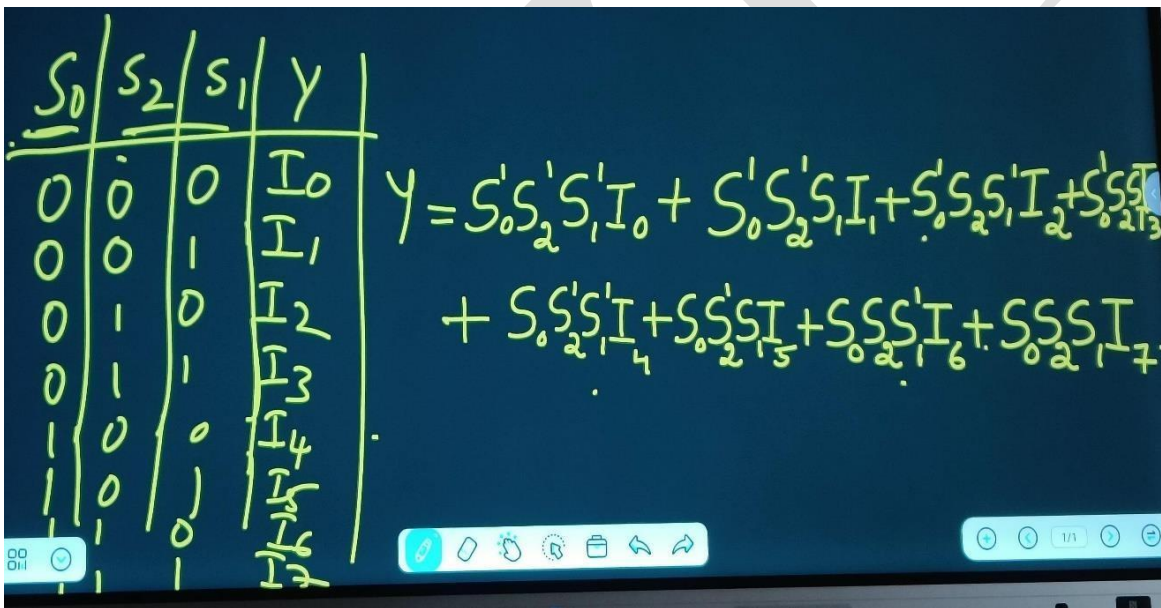 S₀ S₂ S₁ Y
0 0 0 I₀
0 0 1 I₁
0 1 0 I₂
0 1 1 I₃
1 0 0 I₄
1 0 1 I₅
1 1 0 I₆
1 1 1 I₇
Y = S₀'S₂'S₁'I₀ + S₀'S₂'S₁I₁ + S₀'S₂S₁'I₂ + S₀'S₂S₁I₃
+ S₀S₂'S₁'I₄ + S₀S₂'S₁I₅ + S₀S₂S₁'I₆ + S₀S₂S₁I₇
1/1